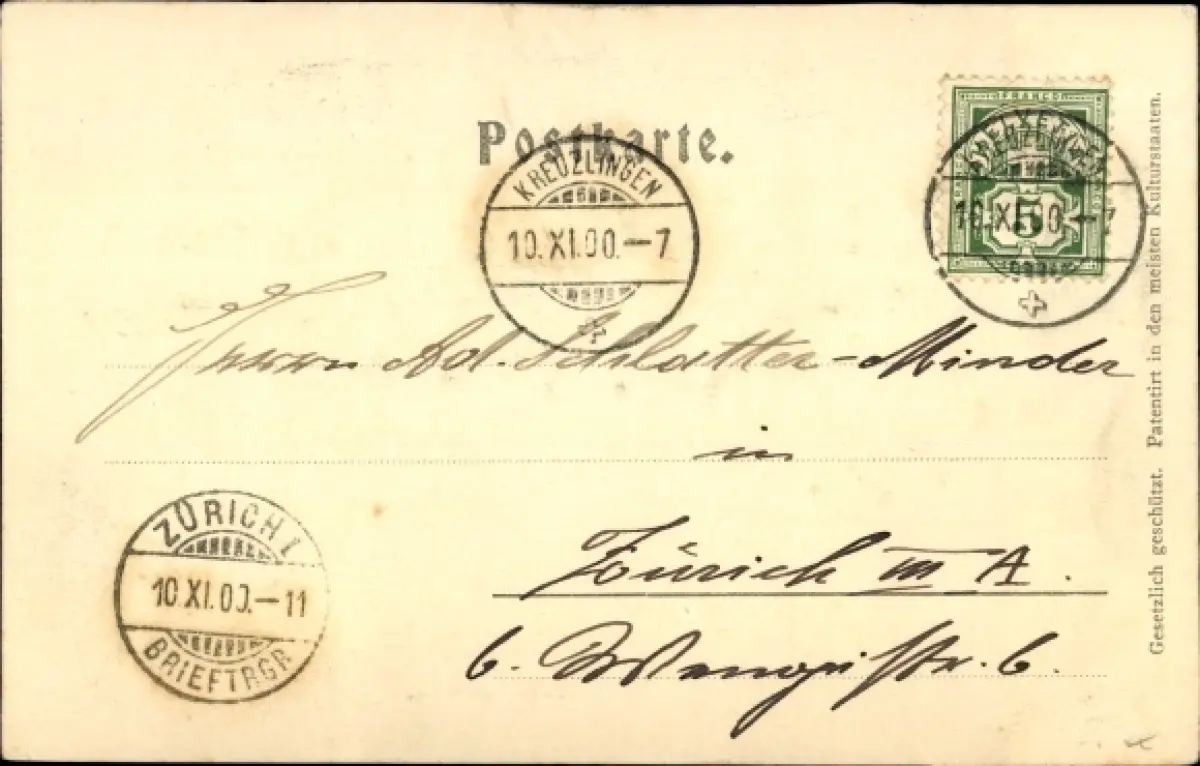 Postkarte.
FRANCO
HELVETIA
5
KREUZLINGEN
10.XI.00.–7
KREUZLINGEN
10.XI.00.–7
Herrn Ad. Schlatter-Minder
in
Zürich III A.
6. Wengistr. 6.
ZÜRICH 1
10.XI.00.–11
BRIEFTRGR
Gesetzlich geschützt. Patentirt in den meisten Kulturstaaten.